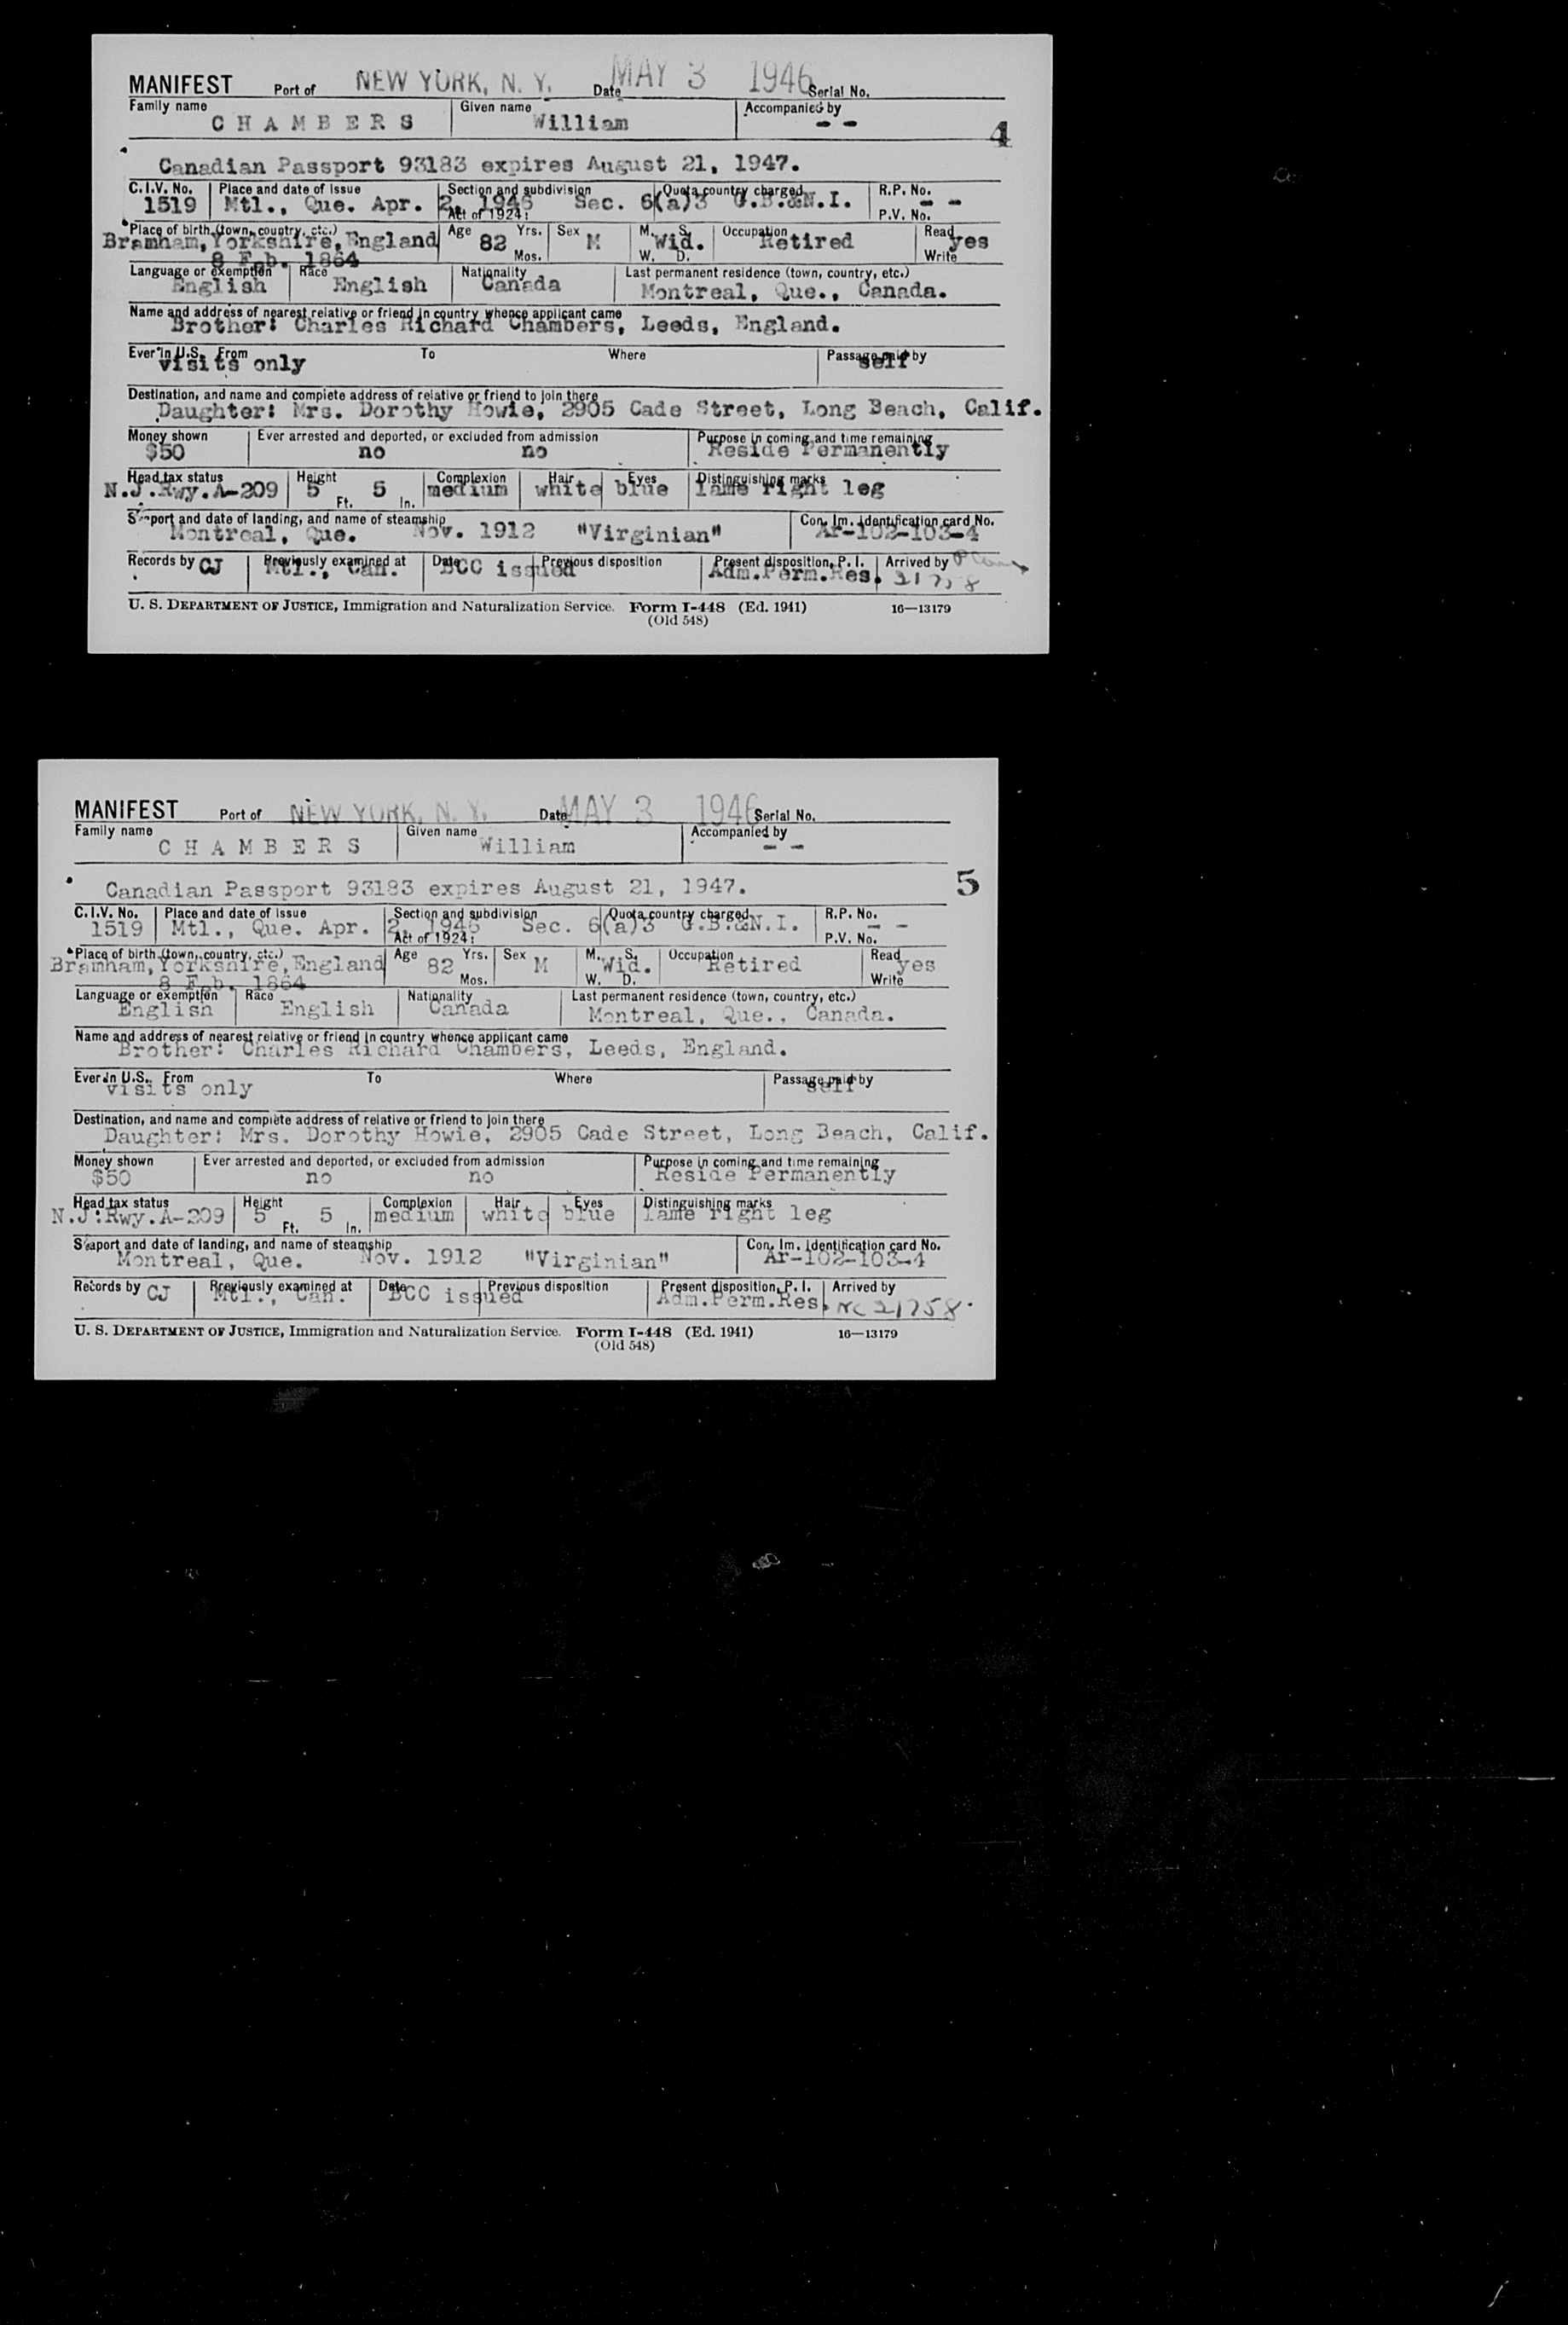 MANIFEST Port of NEW YORK, N. Y. Date MAY 3 1946 Serial No.
Family name Given name Accompanied by
CHAMBERS William - -
4
Canadian Passport 93183 expires August 21, 1947.
C.I.V. No. Place and date of issue Section and subdivision Quota country charged R.P. No.
1519 Mtl., Que. Apr. 2, 1946 Sec. 6(a)3 G.B.&N.I. - -
Act of 1924: P.V. No.
Place of birth (town, country, etc.) Age Yrs. Sex M. S. Occupation Read
Bramham, Yorkshire, England 82 M Wid. Retired yes
8 Feb. 1864 Mos. W. D. Write
Language or exemption Race Nationality Last permanent residence (town, country, etc.)
English English Canada Montreal, Que., Canada.
Name and address of nearest relative or friend in country whence applicant came
Brother: Charles Richard Chambers, Leeds, England.
Ever in U.S. From To Where Passage paid by
visits only self
Destination, and name and complete address of relative or friend to join there
Daughter: Mrs. Dorothy Howie, 2905 Cade Street, Long Beach, Calif.
Money shown Ever arrested and deported, or excluded from admission Purpose in coming and time remaining
$50 no no Reside Permanently
Head tax status Height Complexion Hair Eyes Distinguishing marks
N.J.Rwy.A-209 5 Ft. 5 In. medium white blue lame right leg
Seaport and date of landing, and name of steamship Con. Im. Identification card No.
Montreal, Que. Nov. 1912 "Virginian" Ar-102-103-4
Records by Previously examined at Date Previous disposition Present disposition, P. I. Arrived by
CJ Mtl., Can. BCC issued Adm.Perm.Res. 21758
U. S. DEPARTMENT OF JUSTICE, Immigration and Naturalization Service. Form I-448 (Ed. 1941) 16—13179
(Old 548)
MANIFEST Port of NEW YORK, N. Y. Date MAY 3 1946 Serial No.
Family name Given name Accompanied by
CHAMBERS William - -
5
Canadian Passport 93183 expires August 21, 1947.
C.I.V. No. Place and date of issue Section and subdivision Quota country charged R.P. No.
1519 Mtl., Que. Apr. 2, 1946 Sec. 6(a)3 G.B.&N.I. - -
Act of 1924: P.V. No.
Place of birth (town, country, etc.) Age Yrs. Sex M. S. Occupation Read
Bramham, Yorkshire, England 82 M Wid. Retired yes
8 Feb. 1864 Mos. W. D. Write
Language or exemption Race Nationality Last permanent residence (town, country, etc.)
English English Canada Montreal, Que., Canada.
Name and address of nearest relative or friend in country whence applicant came
Brother: Charles Richard Chambers, Leeds, England.
Ever in U.S. From To Where Passage paid by
visits only self
Destination, and name and complete address of relative or friend to join there
Daughter: Mrs. Dorothy Howie, 2905 Cade Street, Long Beach, Calif.
Money shown Ever arrested and deported, or excluded from admission Purpose in coming and time remaining
$50 no no Reside Permanently
Head tax status Height Complexion Hair Eyes Distinguishing marks
N.J.Rwy.A-209 5 Ft. 5 In. medium white blue lame right leg
Seaport and date of landing, and name of steamship Con. Im. Identification card No.
Montreal, Que. Nov. 1912 "Virginian" Ar-102-103-4
Records by Previously examined at Date Previous disposition Present disposition, P. I. Arrived by
CJ Mtl., Can. BCC issued Adm.Perm.Res. NC 21758
U. S. DEPARTMENT OF JUSTICE, Immigration and Naturalization Service. Form I-448 (Ed. 1941) 16—13179
(Old 548)